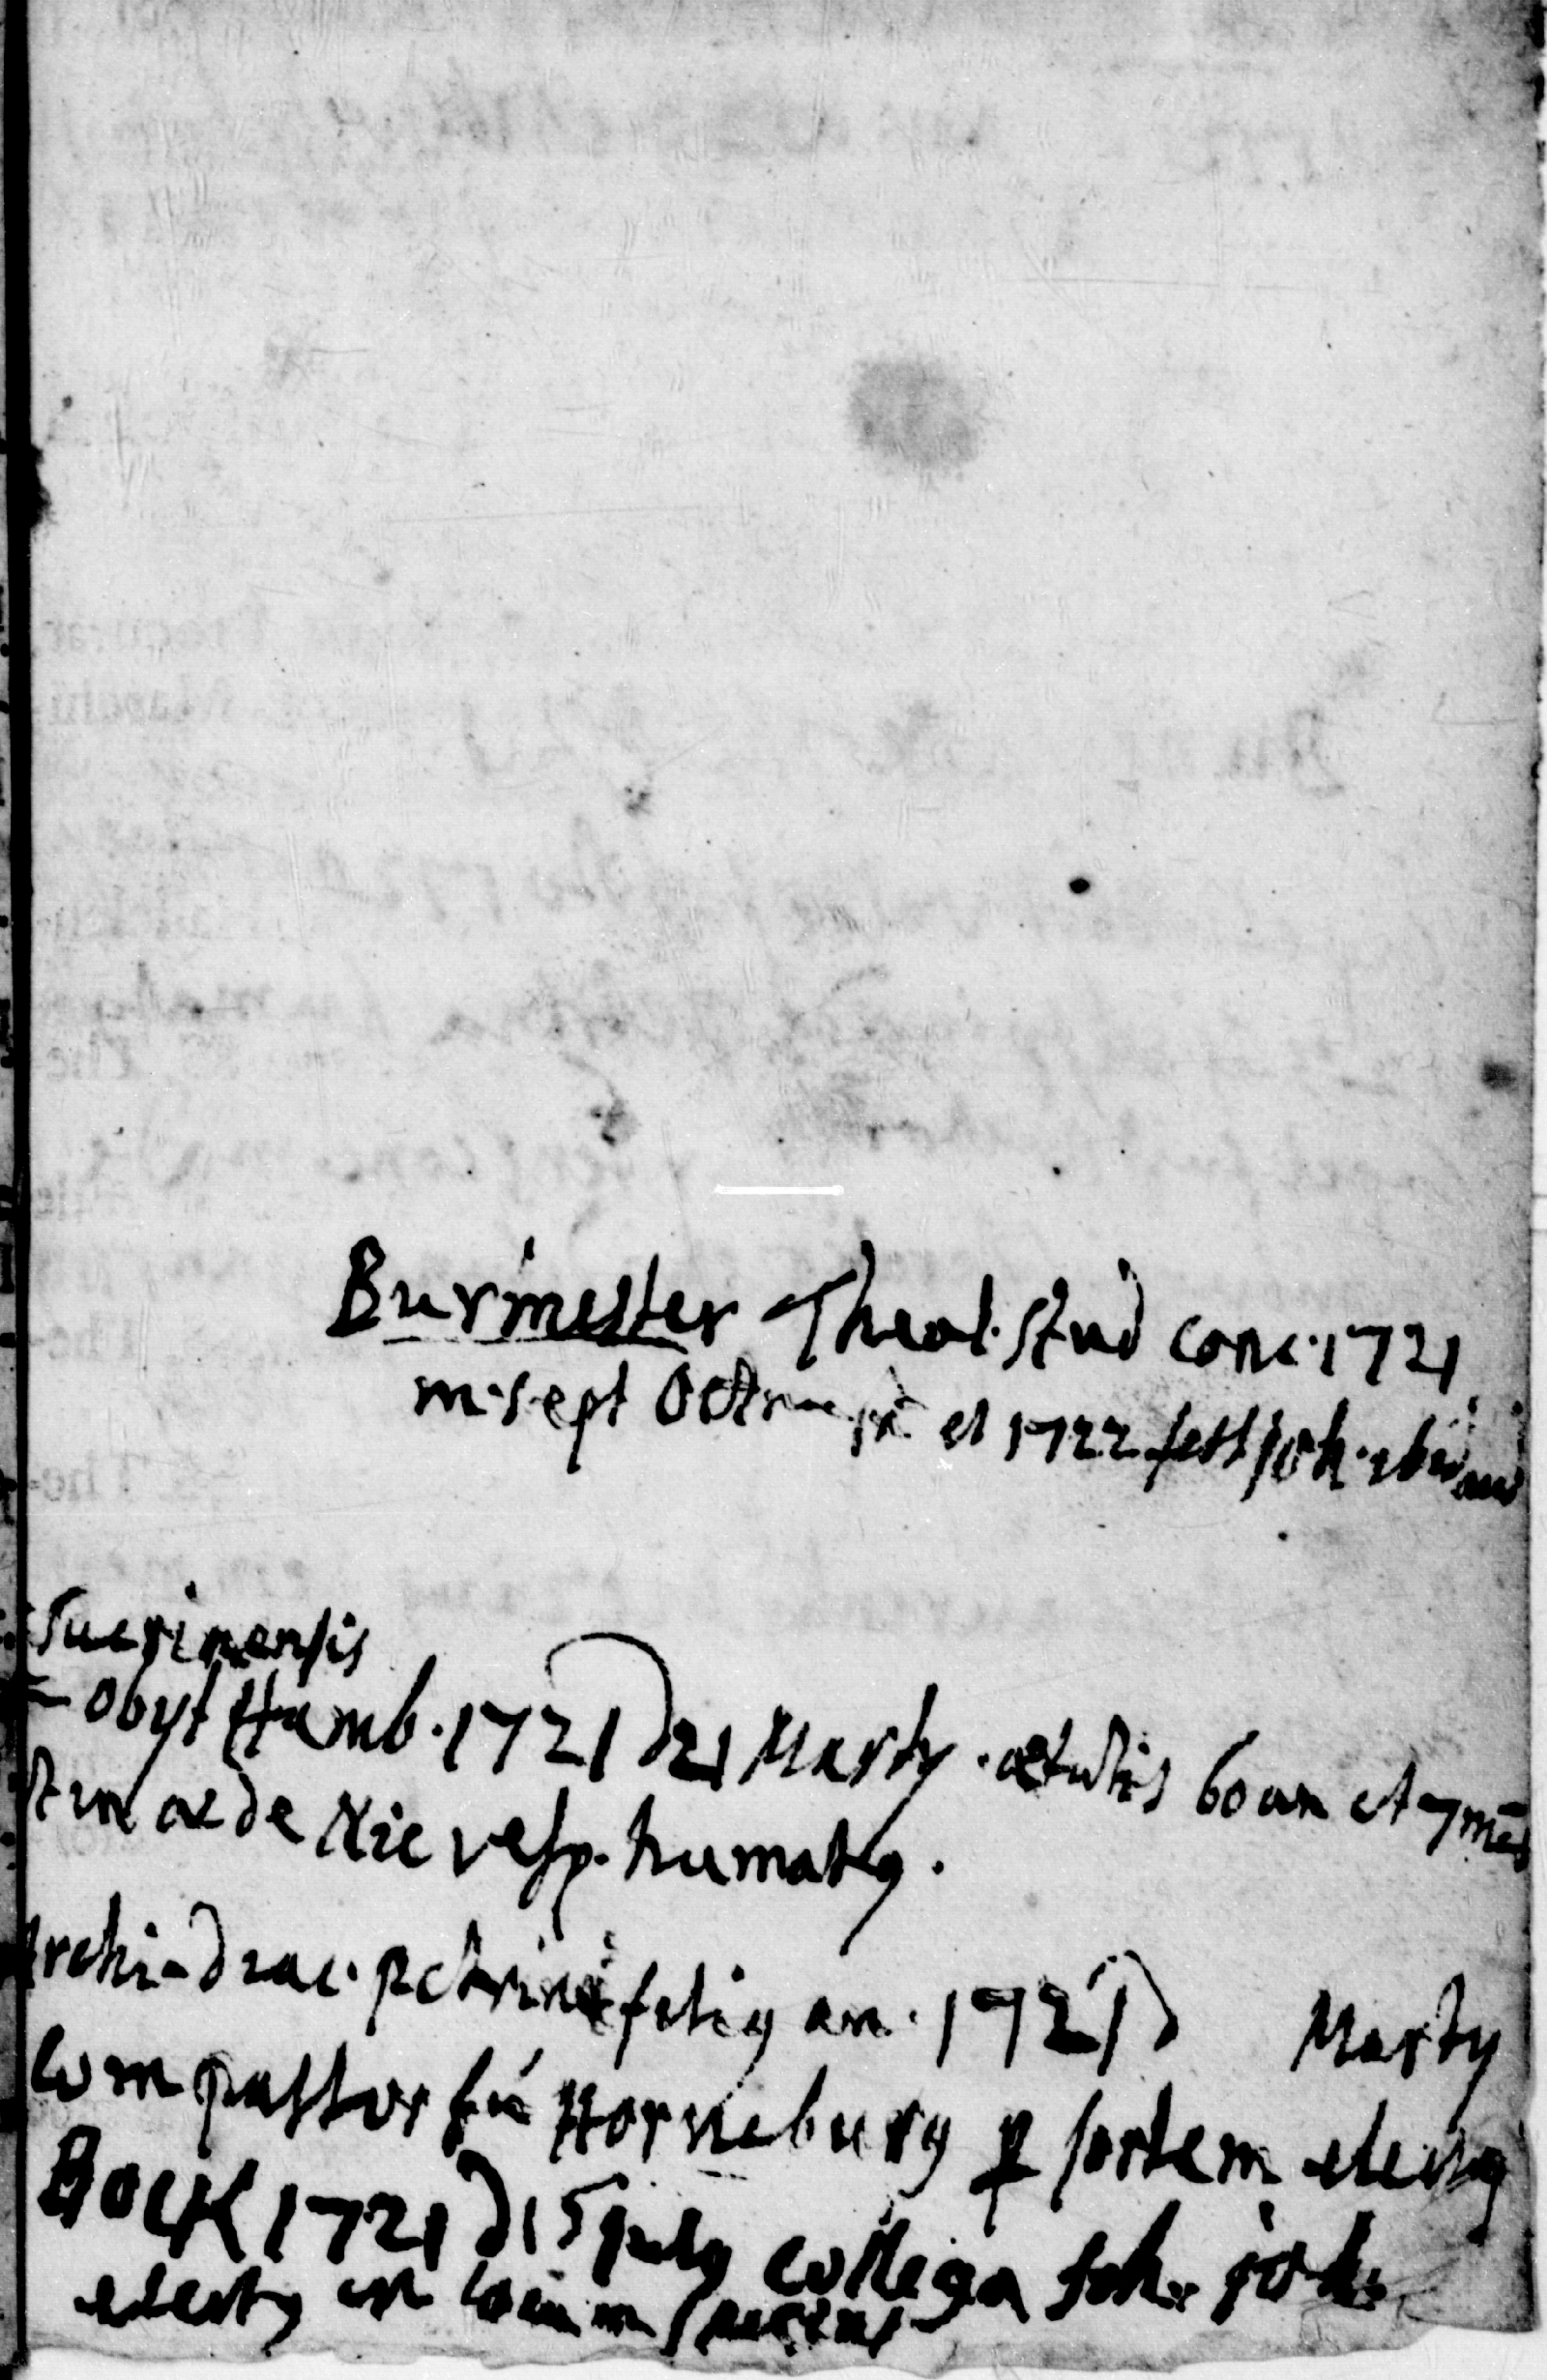 Burmester Theol. stud conc. 1721
m. sept Octr et 1722 fest joh. ibid
Suerinensis
obyt Hamb. 1721 D 21 Marty. aetatis 60 an et 7 mēs
in aede Nic vesp. humatg.
Archi-Diac. petrini an. 1721 D Marty
compastor Horneburg p sortem electg
Bock 1721 D 15 july collega sch. joh.
electg in locum